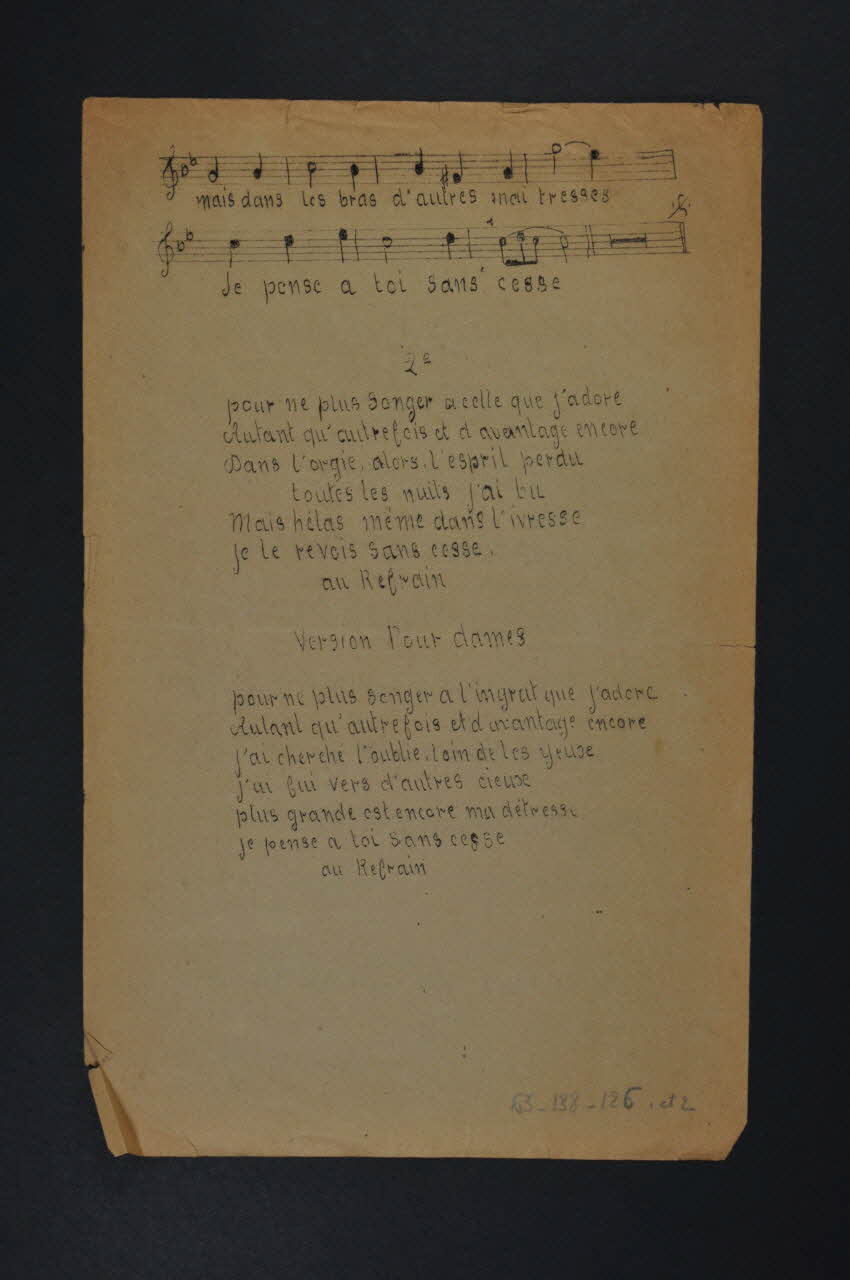 mais dans les bras d'autres mai tresses
Je pense a toi sans cesse
2e
pour ne plus songer a celle que j'adore
Autant qu'autrefois et d avantage encore
Dans l'orgie, alors, l'esprit perdu
toutes les nuits j'ai bu
Mais hélas même dans l'ivresse
je te revois sans cesse.
au Refrain
Version Pour dames
pour ne plus songer a l'ingrat que j'adore
Autant qu'autrefois et d'avantage encore
j'ai cherché l'oublie, loin de tes yeuxe
j'ai fui vers d'autres cieuxe
plus grande est encore ma détresse
je pense a toi sans cesse
au Refrain
63-138-126. et 2